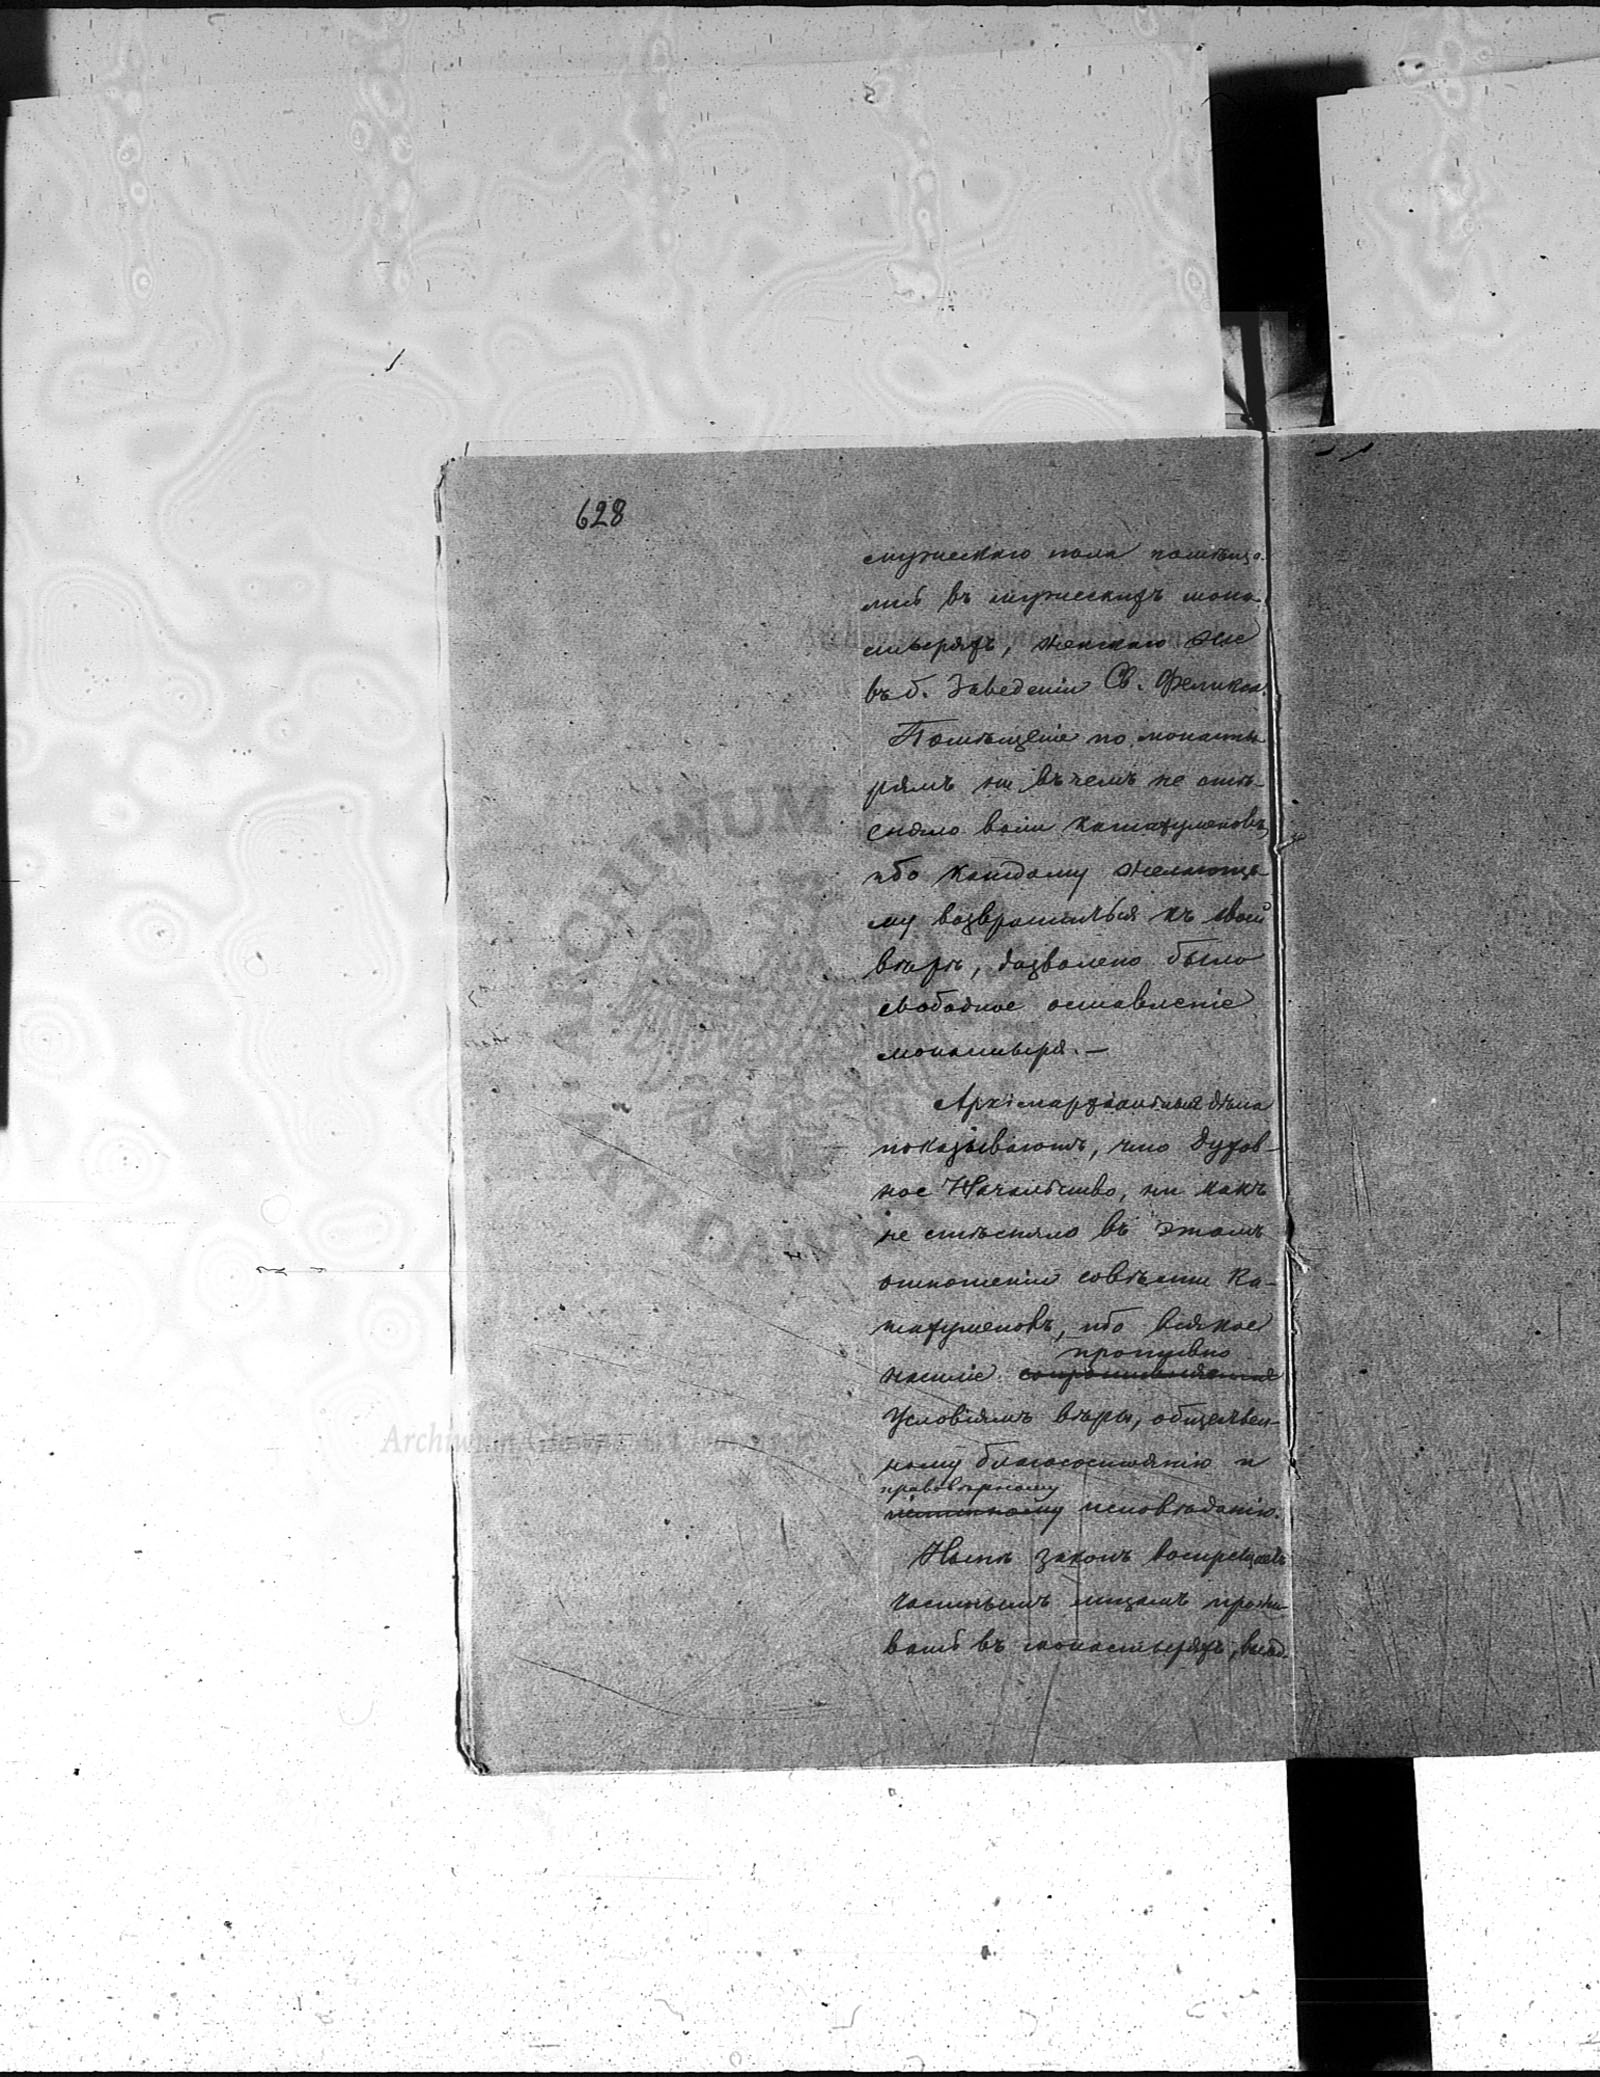 628
мужескаго пола помѣща-
лись въ мужескихъ мона-
стыряхъ, женскаго же
въ б. Заведеніи Св. Феликса.
Помѣщеніе по монасты-
рямъ ни въ чемъ не стѣ-
сняло воли катехуменовъ,
ибо каждому желающе-
му возвратиться къ своей
вѣрѣ, дозволено было
свободное оставленіе
монастыря. —
дѣла
показываютъ, что Духов-
ное Начальство, ни какъ
не стѣсняло въ этомъ
отношеніи совѣсти Ка-
техуменовъ, ибо всякое
противно
насиліе
Условіямъ вѣры, обществен-
ному благосостоянію и
правовѣрному
истинному исповѣданію.
законъ воспрещаетъ
частнымъ лицамъ прожи-
вать въ монастыряхъ,
ARCHIWUM
AKT DAWNYCH